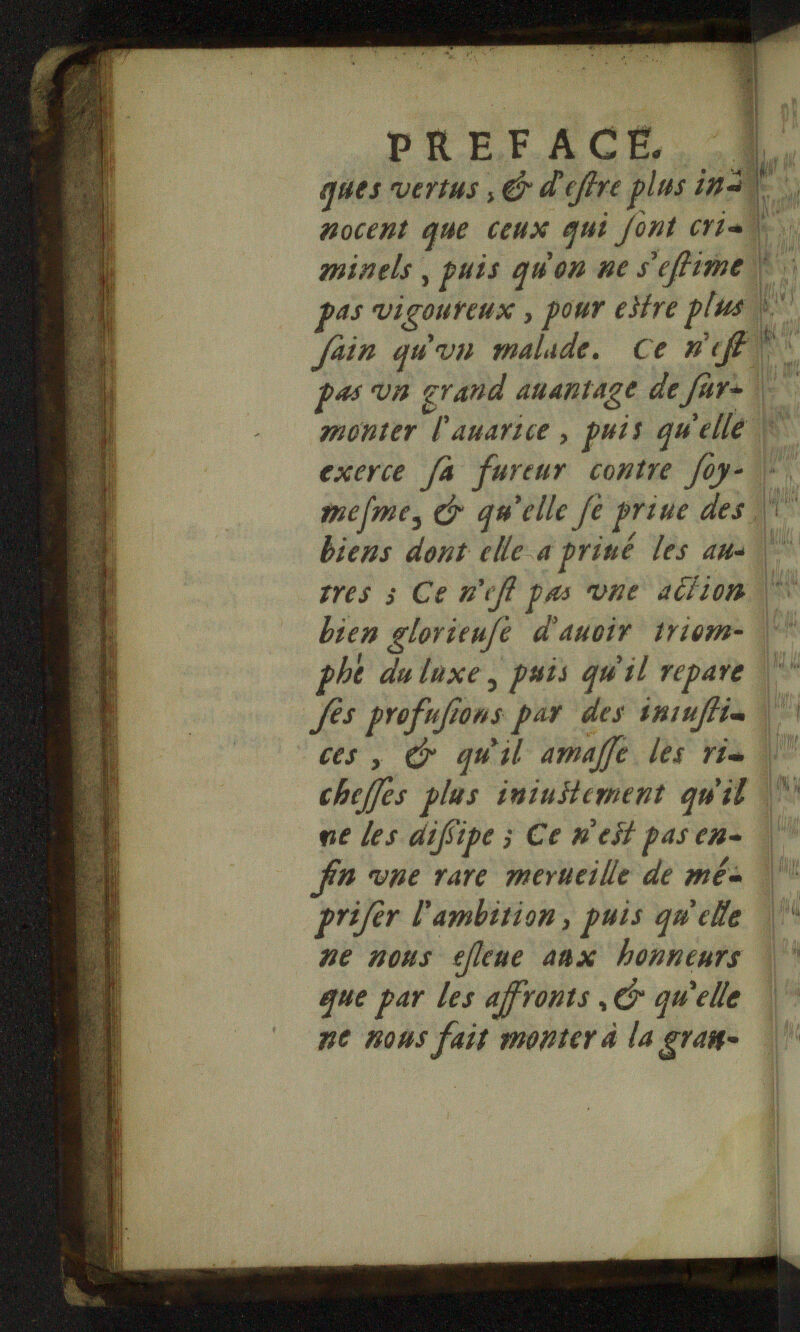 PREFACE.
ques vertus, & d'eſtre plus in-
nocent que ceux qui ſont cri-
minels, puis qu'on ne s'eſtime
pas vigoureux, pour eſtre plus
ſain qu'vn malade. Ce n'eſt
pas vn grand auantage de ſur-
monter l'auarice, puis qu'elle
exerce ſa fureur contre ſoy-
meſme, & qu'elle ſe priue des
biens dont elle a priué les au-
tres; Ce n'eſt pas vne action
bien glorieuſe d'auoir triom-
phé du luxe, puis qu'il repare
ſes profuſions par des iniuſti-
ces, & qu'il amaſſe les ri-
cheſſes plus iniuſtement qu'il
ne les diſsipe; Ce n'eſt pas en-
fin vne rare merueille de mé-
priſer l'ambition, puis qu'elle
ne nous eſleue aux honneurs
que par les affronts, & qu'elle
ne nous fait monter à la gran-